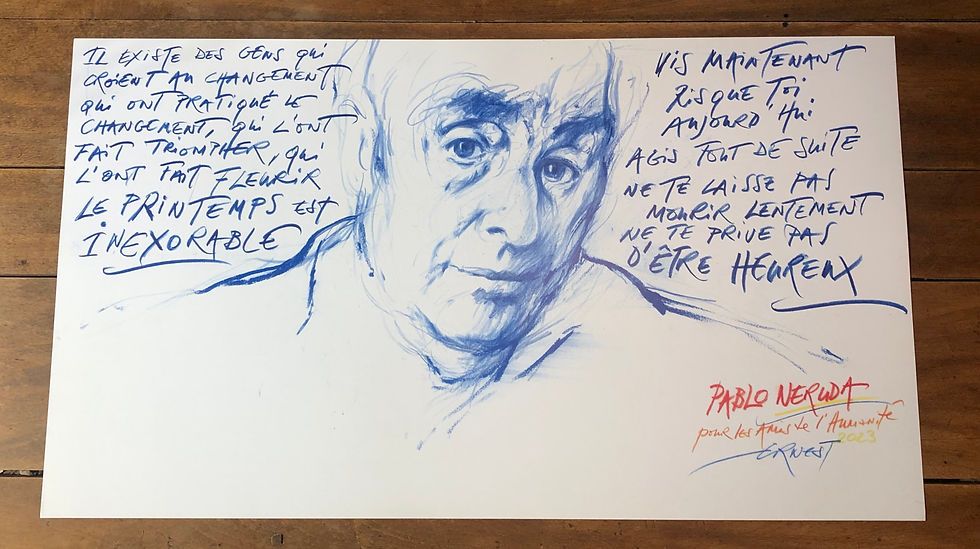 IL EXISTE DES GENS qui
CROIENT AU CHANGEMENT,
qui ONT PRATIQUÉ LE
CHANGEMENT, qui L'ONT
FAIT TRIOMPHER, qui
L'ONT FAIT FLEURIR
LE PRINTEMPS EST
INEXORABLE
VIS MAINTENANT
RISQUE TOI
AUJOURD'HUI
AGIS TOUT DE SUITE
NE TE LAISSE PAS
MOURIR LENTEMENT
NE TE PRIVE PAS
D'ÊTRE HEUREUX
PABLO NERUDA
pour les Amis de l'Humanité
2023
ERNEST